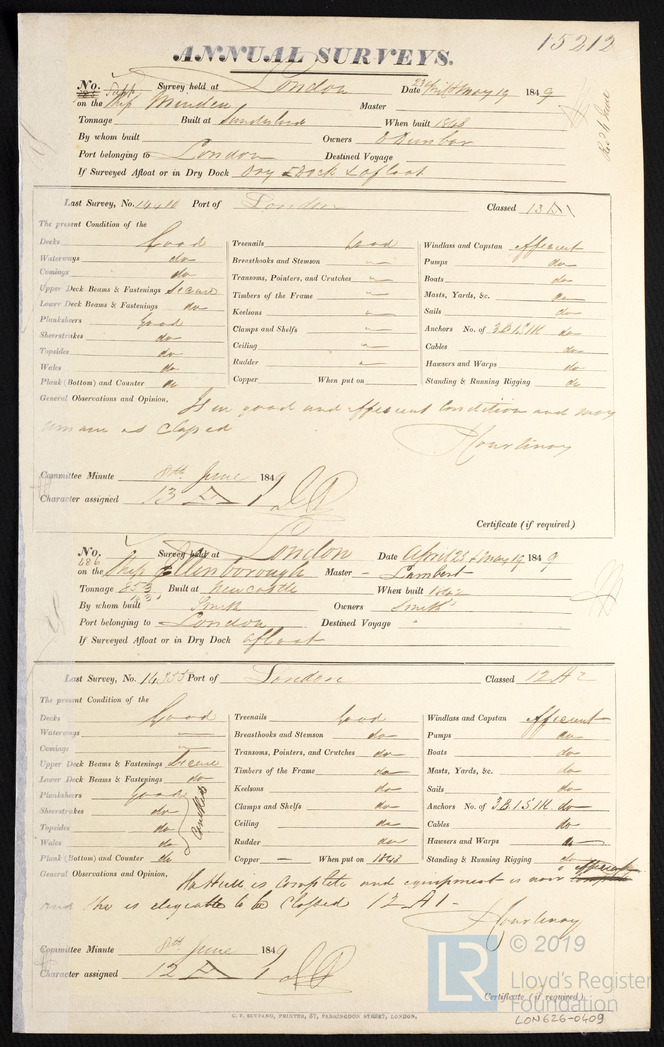 15212
ANNUAL SURVEYS.
No. Survey held at London Date May 19 1849
on the Ship Minden Master
Tonnage Built at Sunderland When built 1848
By whom built Owners D Dunbar
Port belonging to London Destined Voyage
If Surveyed Afloat or in Dry Dock Dry Dock & afloat
Recd 4 June
Last Survey, No. 14410 Port of London Classed 13 A 1
The present Condition of the
Decks Good
Waterways do
Comings do
Upper Deck Beams & Fastenings Secure
Lower Deck Beams & Fastenings do
Planksheers Good
Sheerstrakes do
Topsides do
Wales do
Plank (Bottom) and Counter do
Treenails Good
Breasthooks and Stemson "
Transoms, Pointers, and Crutches "
Timbers of the Frame "
Keelsons "
Clamps and Shelfs "
Ceiling "
Rudder "
Copper When put on
Windlass and Capstan efficient
Pumps do
Boats do
Masts, Yards, &c. do
Sails do
Anchors No. of 3.B.1S.1K. do
Cables do
Hawsers and Warps do
Standing & Running Rigging do
General Observations and Opinion, Is in good and efficient Condition and may
remain as Classed
Courtenay
Committee Minute 8th June 1849
Character assigned 13 A 1
Certificate (if required)
No. 686 Survey held at London Date April 23 & May 19 1849
on the Ship Ellenborough Master - Lambert
Tonnage 853 Built at Newcastle When built 1842
1031
By whom built Smith Owners Smith
Port belonging to London Destined Voyage
If Surveyed Afloat or in Dry Dock afloat
Last Survey, No. 14355 Port of London Classed 12 A 1
The present Condition of the
Decks Good
Waterways
Comings
Upper Deck Beams & Fastenings Secure
Lower Deck Beams & Fastenings do
Planksheers Good
Sheerstrakes do
Topsides do
Wales do
Plank (Bottom) and Counter do
Caulked
Treenails Good
Breasthooks and Stemson do
Transoms, Pointers, and Crutches do
Timbers of the Frame do
Keelsons do
Clamps and Shelfs do
Ceiling do
Rudder do
Copper - When put on 1848
Windlass and Capstan efficient
Pumps do
Boats do
Masts, Yards, &c. do
Sails do
Anchors No. of 3.B.1S.1K. do
Cables do
Hawsers and Warps do
Standing & Running Rigging do
General Observations and Opinion, Her Hull is Complete and equipment is now efficient
and she is eligible to be Classed 12 A 1 -
Courtenay
Committee Minute 8th June 1849
Character assigned 12 A 1
Certificate (if required)
C. F. SEYFANG, PRINTER, 57, FARRINGDON STREET, LONDON.
LR
© 2019
Lloyd's Register
Foundation
LON626-0409